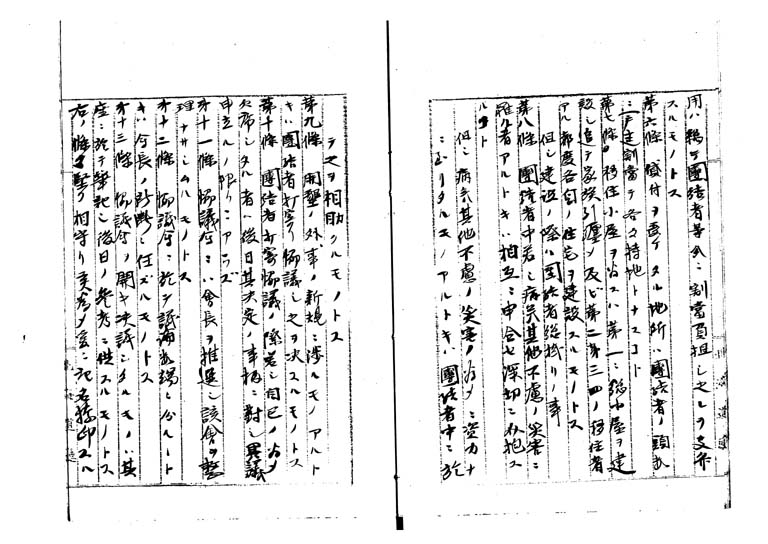 用ハ総テ團結者各戸ニ割當負担シ之レヲ支弁
スルモノトス
第六條 貸付ヲ受ケタル地所ハ團結者ノ頭数
ニ 割當テ各々持地トナスコト
第七條 移住小屋ヲ ハ第一ニ総小屋ヲ建
設シ追テ家族引纏メ及ビ第二第三四ノ移住者
アル都度各自ノ住宅ヲ建設スルモノトス
但シ建設ノ際ハ團結者総掛リノ事
第八條 團結者中若シ病気其他不慮ノ災害ニ
罹ル者アルトキハ相互ニ申合セ深切ニ救抱ス
ルコト
但シ病気其他不慮ノ災害ノ為メニ資力ナ
ニ至リタルモノアルトキハ團結者中ニ於
テ之ヲ相助クルモノトス
第九條 開墾ノ外事ノ新規ニ渉ルモノアルト
キハ團結者打寄リ協議シ之ヲ決スルモノトス
第十條 團結者打寄協議ノ際若シ自己ノ為メ
欠席シタル者ハ後日其決定ノ事柄ニ對シ異議
申立ルノ限リニアラズ
第十一條 協議会ニハ會長ヲ推選シ該會ヲ整
理ナサシムルモノトス
第十二條 協議会ニ於テ議論 分ルヽト
キハ会長ノ判断ニ任ズルモノトス
第十三條 協議会ノ開キ決議シタルモノハ其
座ニ於テ筆記シ後日ノ参考ニ供スルモノトス
右ノ條々堅ク相守リ 為メ玆ニ記名捺印スル